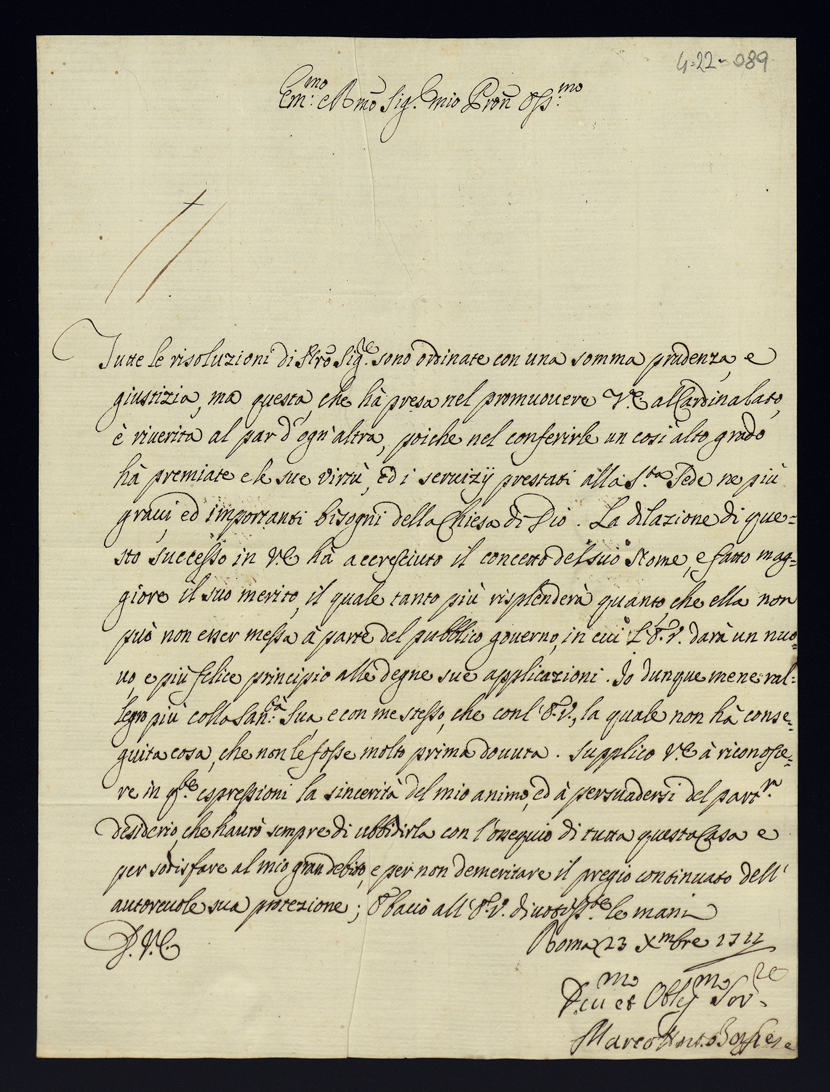 4-22-089
Em:mo e Rmo Sig.r mio Pron Oss:mo
Tutte le risoluzioni di Nro Sig.re sono ordinate con una somma prudenza, e
giustizia, ma questa, che hà presa nel promuovere V.E. al Cardinalato,
è riuerita al par d'ogn'altra, poiche nel conferirle un così alto grado
hà premiate e le sue virtù, ed i seruizij prestati alla S.ta Sede ne più
graui ed importanti bisogni della Chiesa di Dio. La dilazione di que=
sto successo in V.E. hà accresciuto il concetto del suo Nome, e fatto mag=
giore il suo merito, il quale tanto più risplenderà quanto che ella non
può non esser messa à parte del pubblico governo, in cui l'E.V. darà un nuo=
uo, e più felice principio alle degne sue applicazioni. Io dunque me ne ral=
legro più colla San:tà Sua e con me stesso, che con l'E.V., la quale non hà conse=
guita cosa, che non le fosse molto prima douuta. Supplico V.E. à riconosce=
re in q.ste espressioni la sincerità del mio animo, ed à persuadersi del part.re
desiderio, che haurò sempre di ubbidirla con l'ossequio di tutta questa Casa e
per sodisfare al mio gran debito, e per non demeritare il pregio continuato dell'
autoreuole sua protezione; E bacio all'E.V. diuotiss.te le mani
D. V. E.
Roma 23 Xmbre 1711
D.mo et Obl.mo Ser.re
Marco Ant.o Borghese